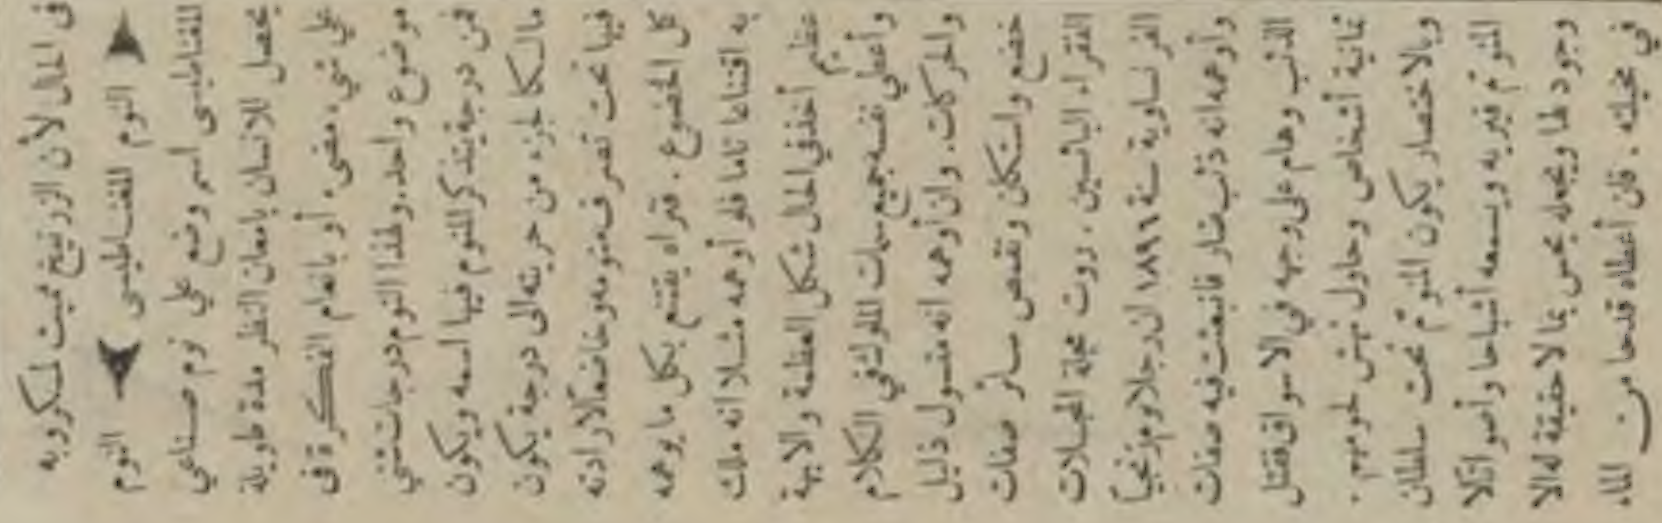 في الحال لأن الزرنيخ مميت لمكروبه
النوم المغناطيسي — النوم
المغناطيسي اسم وضع علي نوم صناعي
يحصل للانسان بامعان النظر مدة طويلة
علي شيء مضيء أو بانعام الفكرة في
موضوع واحد. ولهذا النوم درجات شتي
فمن درجة يتذكر المنوم فيها اسمه ويكون
مالكا لجزء من حريته الى درجة يكون
فيها تحت تصرف منومه وخاضعا لارادته
كل الخضوع . فتراه يقتنع بكل ما يوهمه
به اقتناعا تاما فلو أوهمه مثلا انه ملك
عظيم أخذ في الحال شكل العظمة والابهة
وأعطي نفسه جميع سمات الملوك في الكلام
والحركات. وان أوهمه انه متسول ذليل
خضع واستكان وتقمص سائر صفات
الفقراء البائسين . روت مجلة المجلات
الفرنساوية سنة ١٨٩٦ ان رجلا نوم زنجياً
وأوهمه انه ذئب ضار فانبعثت فيه صفات
الذئب وهام على وجهه في الاسواق فقتل
ثمانية أشخاص وحاول نهش لحومهم .
وبالاختصار يكون المنوّم تحت سلطان
المنوّم فيريه ويسمعه أشباحا وأصواتا لا
وجود لها ويجعله يحس بما لا حقيقة له الا
في مخيلته . فان أعطاه قدحا من الماء